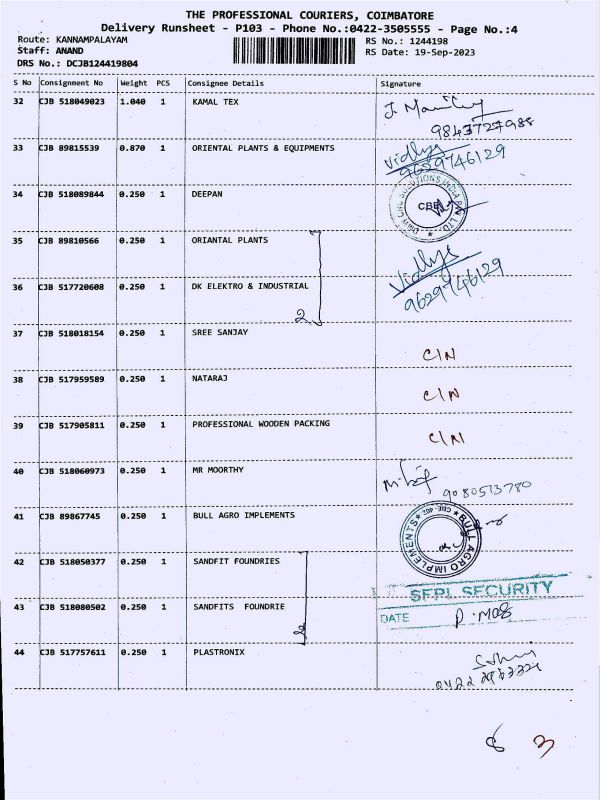 THE PROFESSIONAL COURIERS, COIMBATORE
Delivery Runsheet - P103 - Phone No.:0422-3505555 - Page No.:4
Route: KANNAMPALAYAM
RS No.: 1244198
Staff: ANAND
RS Date: 19-Sep-2023
DRS No.: DCJB124419804
S No Consignment No Weight PCS Consignee Details Signature
32 CJB 518049023 1.040 1 KAMAL TEX
9843727988
33 CJB 89815539 0.870 1 ORIENTAL PLANTS & EQUIPMENTS
Vidhya
9629746129
34 CJB 518089844 0.250 1 DEEPAN
CBE
35 CJB 89810566 0.250 1 ORIANTAL PLANTS
Vidhya
36 CJB 517720608 0.250 1 DK ELEKTRO & INDUSTRIAL
9629746129
2
37 CJB 518018154 0.250 1 SREE SANJAY
C/N
38 CJB 517959589 0.250 1 NATARAJ
C/N
39 CJB 517905811 0.250 1 PROFESSIONAL WOODEN PACKING
C/N
40 CJB 518060973 0.250 1 MR MOORTHY
9080513780
41 CJB 89867745 0.250 1 BULL AGRO IMPLEMENTS
BULL AGRO IMPLEMENTS
42 CJB 518050377 0.250 1 SANDFIT FOUNDRIES
SFPL SECURITY
43 CJB 518080502 0.250 1 SANDFITS FOUNDRIE
DATE
44 CJB 517757611 0.250 1 PLASTRONIX
3